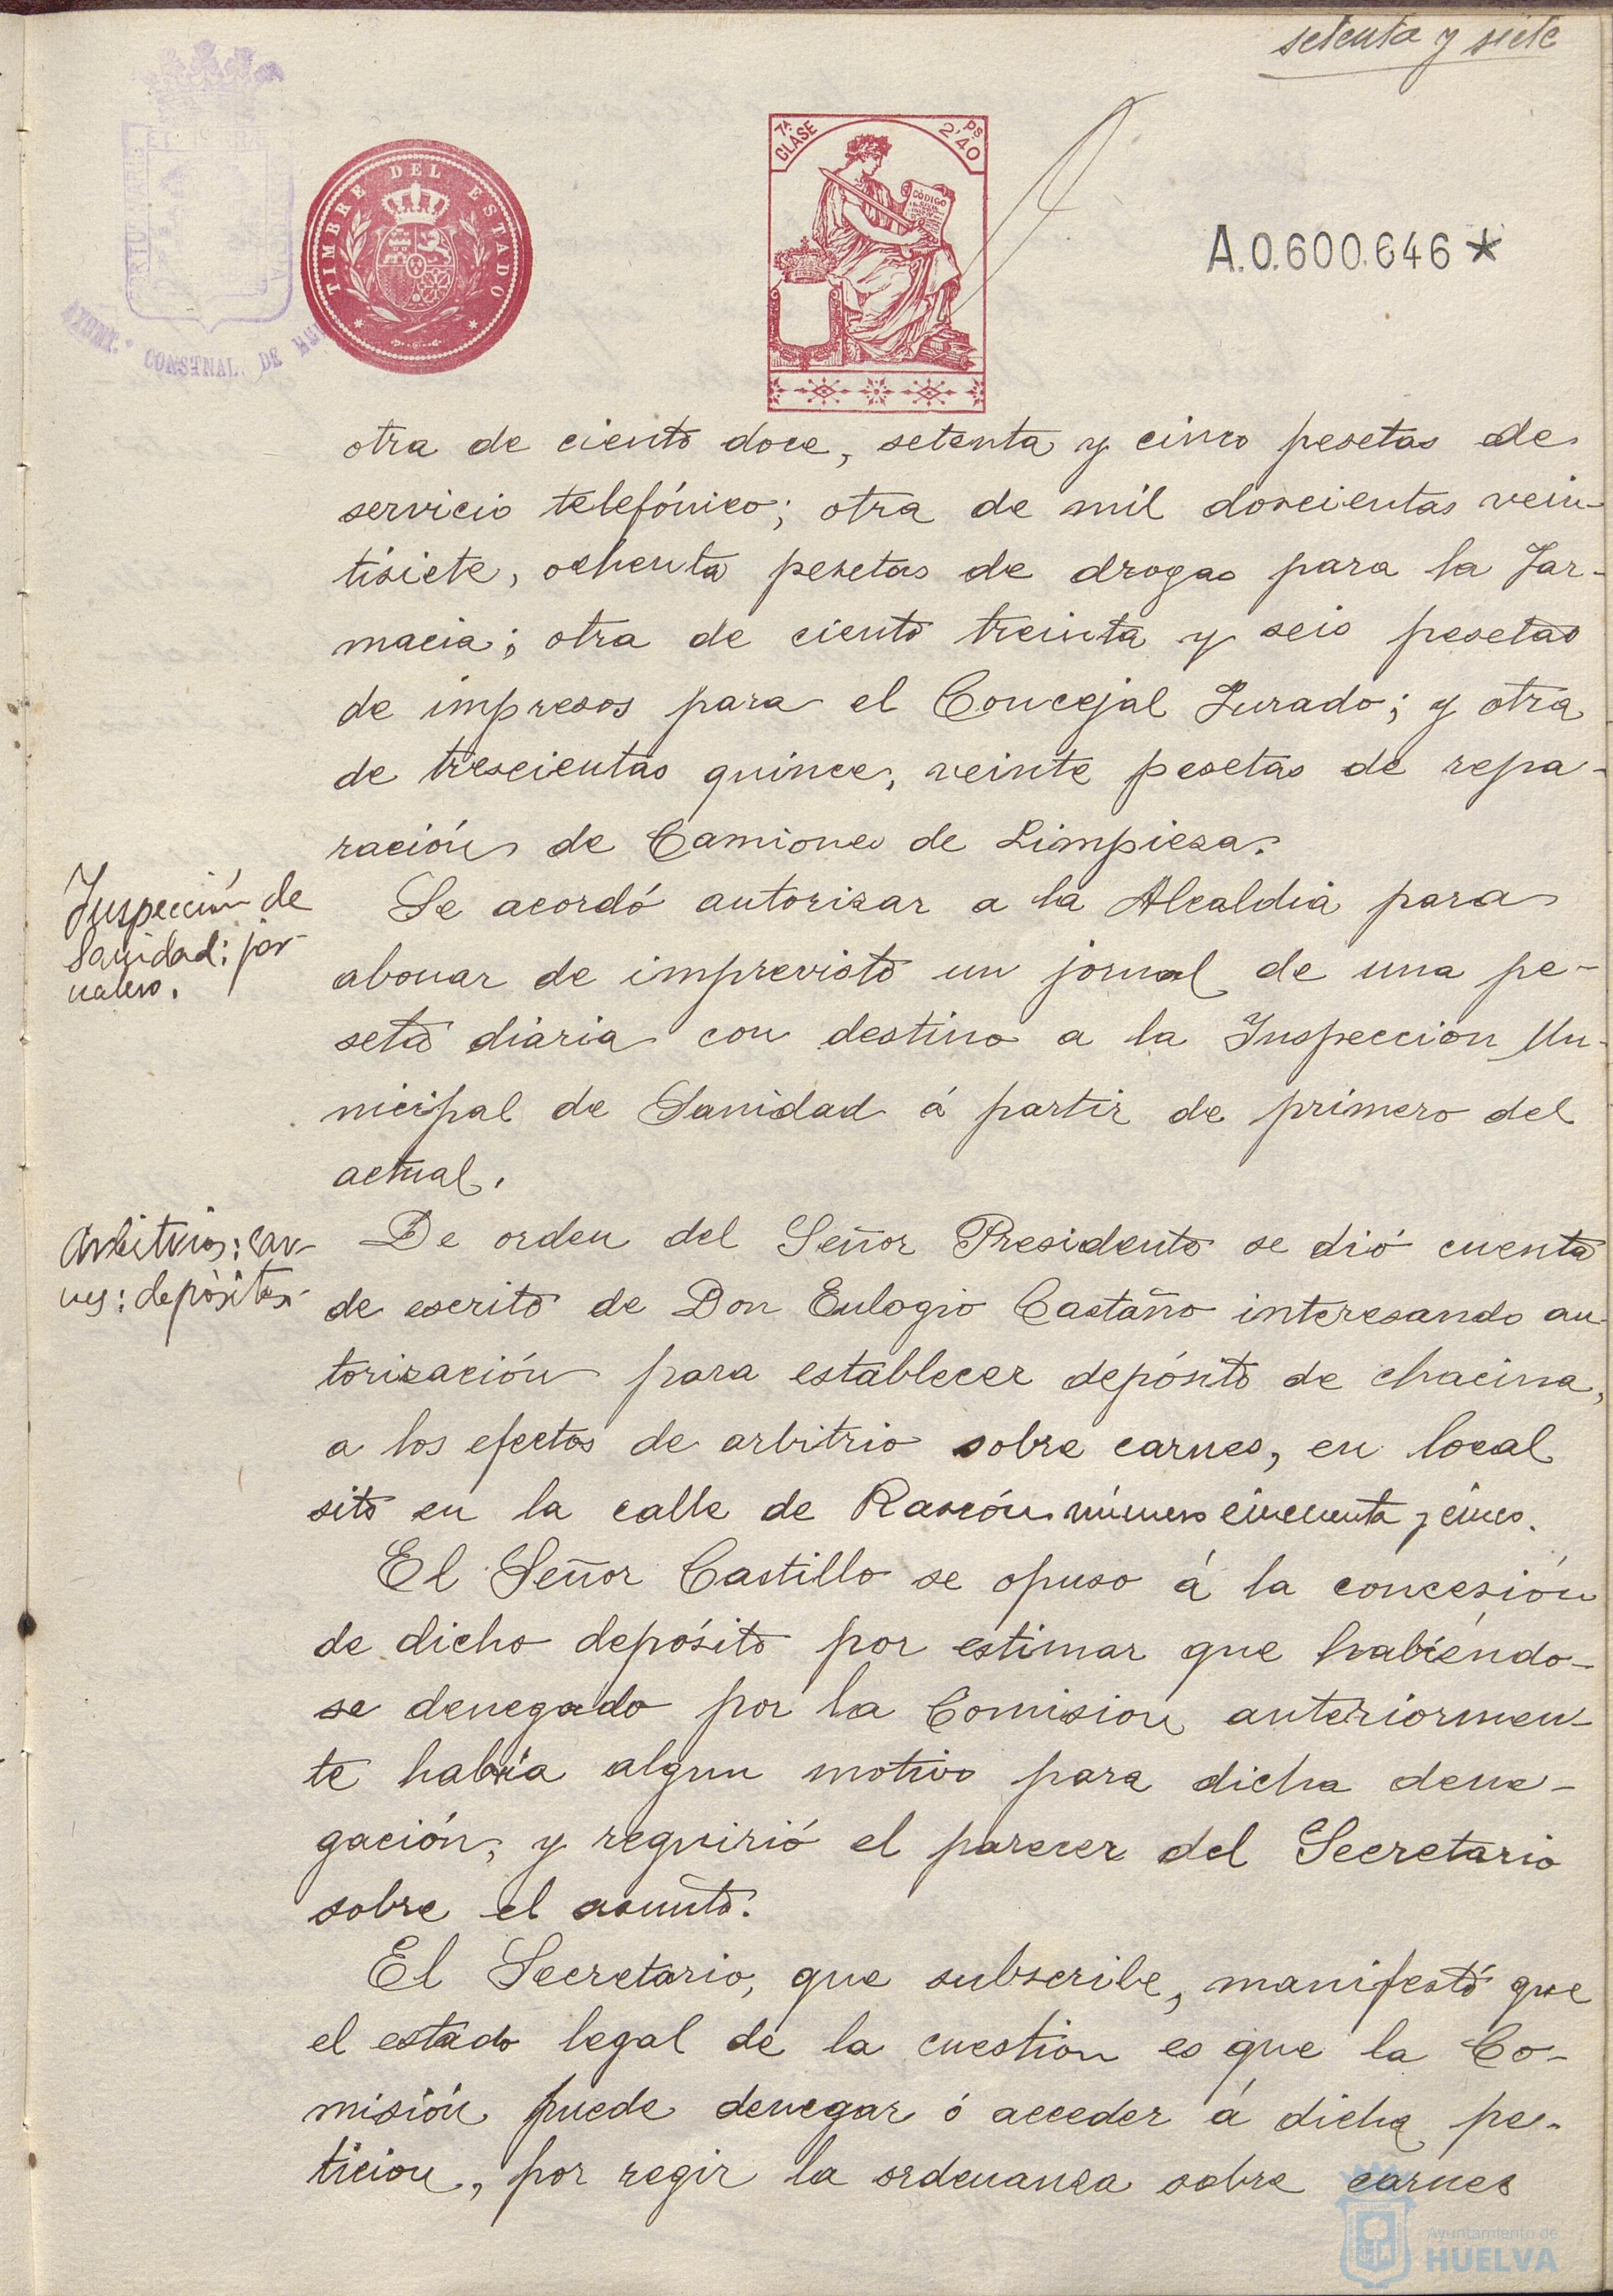 setenta y siete
TIMBRE DEL ESTADO
7ª CLASE
2'40 Ps
CÓDIGO
A.0.600.646*
AYUNT.º CONSTNAL. DE HU
otra de ciento doce, setenta y cinco pesetas de
servicio telefónico; otra de mil doscientas vein-
tisiete, ochenta pesetas de drogas para la Far-
macia; otra de ciento treinta y seis pesetas
de impresos para el Concejal Jurado; y otra
de trescientas quince, veinte pesetas de repa-
ración de Camiones de Limpieza.
Inspección de
Sanidad: jor-
nales.
Se acordó autorizar a la Alcaldia para
abonar de imprevisto un jornal de una pe-
seta diaria con destino a la Inspeccion Mu-
nicipal de Sanidad á partir de primero del
actual.
Arbitrios: car-
nes: depósitos.
De orden del Señor Presidente se dió cuenta
de escrito de Don Eulogio Castaño interesando au-
torización para establecer depósito de chacina,
a los efectos de arbitrio sobre carnes, en local
sito en la calle de Rascón número cincuenta y cinco.
El Señor Castillo se opuso á la concesión
de dicho depósito por estimar que habiéndo-
se denegado por la Comision anteriormen-
te habria algun motivo para dicha dene-
gación, y requirió el parecer del Secretario
sobre el asunto.
El Secretario, que subscribe, manifestó que
el estado legal de la cuestion es que la Co-
misión puede denegar ó acceder á dicha pe-
ticion, por regir la ordenanza sobre carnes
Ayuntamiento de
HUELVA